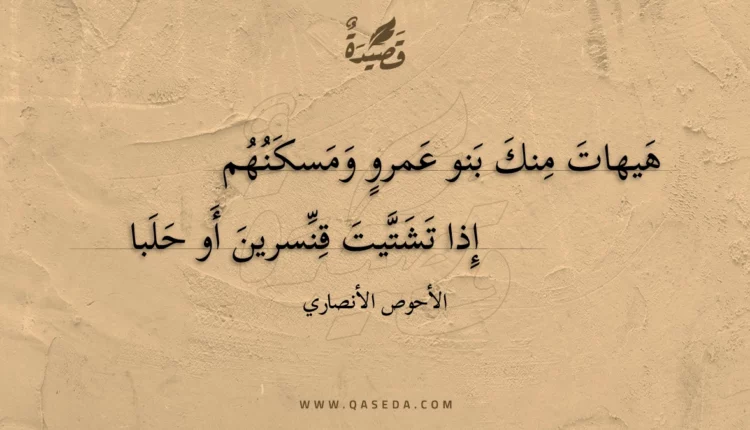 قَصِيْدَةٌ
هَيهاتَ مِنكَ بَنو عَمروٍ وَمَسكَنُهُم
إِذا تَشَتَّيتَ قِنِّسرينَ أَو حَلَبا
الأحوص الأنصاري
WWW.QASEDA.COM